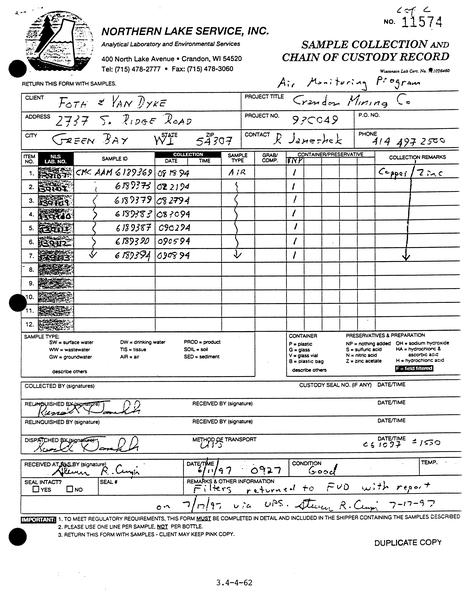 6 of 6
NORTHERN LAKE SERVICE, INC.
NO. 11574
Analytical Laboratory and Environmental Services
400 North Lake Avenue • Crandon, WI 54520
Tel: (715) 478-2777 • Fax: (715) 478-3060
SAMPLE COLLECTION AND
CHAIN OF CUSTODY RECORD
Wisconsin Lab Cert. No.
RETURN THIS FORM WITH SAMPLES.
Air Monitoring Program
CLIENT Foth & Van Dyke
PROJECT TITLE Crandon Mining Co
ADDRESS 2737 S. Ridge Road
PROJECT NO. 93C049 P.O. NO.
CITY Green Bay STATE WI ZIP 54307 CONTACT PHONE 414 497 2500
ITEM NO. NLS LAB. NO. SAMPLE ID COLLECTION DATE TIME SAMPLE TYPE GRAB/COMP. CONTAINER/PRESERVATIVE COLLECTION REMARKS
1. CMC AAM 6189369 081894 AIR 1 Copper / Zinc
2. 6189373 082194 1
3. 6189379 082794 1
4. 6189383 083094 1
5. 6189387 090294 1
6. 6189390 090594 1
7. 6189394 090894 1
8.
9.
10.
11.
12.
SAMPLE TYPE:
SW = surface water DW = drinking water PROD = product
WW = wastewater TIS = tissue SOIL = soil
GW = groundwater AIR = air SED = sediment
describe others
CONTAINER
P = plastic
G = glass
V = glass vial
B = plastic bag
describe others
PRESERVATIVES & PREPARATION
NP = nothing added OH = sodium hydroxide
S = sulfuric acid HA = hydrochloric & ascorbic acid
N = nitric acid
Z = zinc acetate H = hydrochloric acid
F = field filtered
COLLECTED BY (signatures) CUSTODY SEAL NO. (IF ANY) DATE/TIME
RELINQUISHED BY (signatures) RECEIVED BY (signatures) DATE/TIME
RELINQUISHED BY (signatures) RECEIVED BY (signatures) DATE/TIME
DISPATCHED BY (signature) METHOD OF TRANSPORT UPS DATE/TIME 061097 @ 1550
RECEIVED AT NLS BY (signature) DATE/TIME 6/11/97 0927 CONDITION Good TEMP.
SEAL INTACT? YES NO SEAL # REMARKS & OTHER INFORMATION
Filters returned to FVD with report
on 7/17/97 via UPS. 7-17-97
IMPORTANT: 1. TO MEET REGULATORY REQUIREMENTS, THIS FORM MUST BE COMPLETED IN DETAIL AND INCLUDED IN THE SHIPPER CONTAINING THE SAMPLES DESCRIBED
2. PLEASE USE ONE LINE PER SAMPLE, NOT PER BOTTLE.
3. RETURN THIS FORM WITH SAMPLES - CLIENT MAY KEEP PINK COPY.
DUPLICATE COPY
3.4-4-62